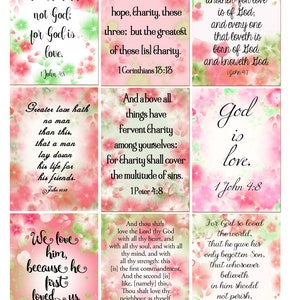 not God;
for God is
love.
1 John 4:8
hope, charity, these
three; but the greatest
of these [is] charity.
1 Corinthians 13:13
another: for love
is of God;
and every one
that loveth is
born of God,
and knoweth God.
1 John 4:7
Greater love hath
no man
than this,
that a man
lay down
his life for
his friends.
John 15:13
And above all
things have
fervent charity
among yourselves:
for charity shall cover
the multitude of sins.
1 Peter 4:8
God
is
love.
1 John 4:8
We love
him,
because he
first
loved us
And thou shalt
love the Lord thy God
with all thy heart, and
with all thy soul, and with
all thy mind, and with
all thy strength: this
[is] the first commandment.
And the second [is]
like, [namely] this,
Thou shalt love thy
neighbour as thyself.
For God so loved
the world,
that he gave his
only begotten Son,
that whosoever
believeth
in him should
not perish,